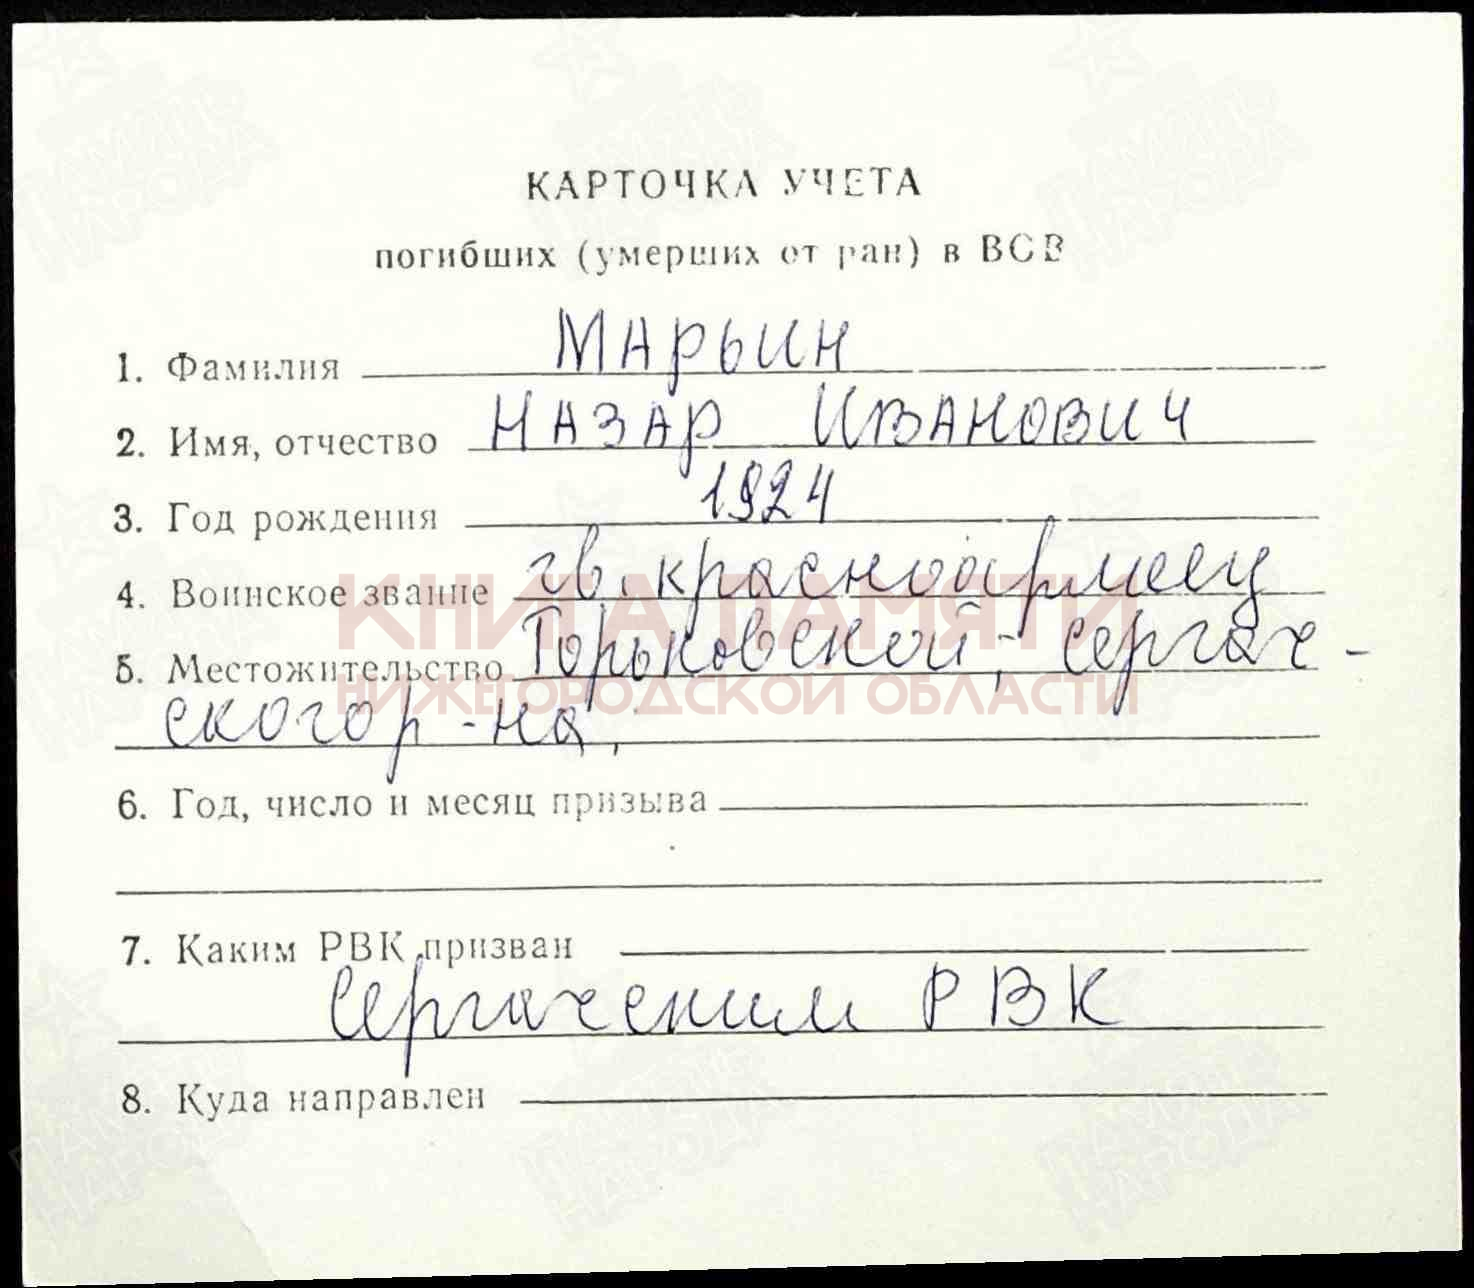 КАРТОЧКА УЧЕТА
погибших (умерших от ран) в ВОВ
1. Фамилия Марьин
2. Имя, отчество Назар Иванович
3. Год рождения 1924
4. Воинское звание гв. красноармеец
КНИГА ПАМЯТИ
5. Местожительство Горьковской, Сергач-
НИЖЕГОРОДСКОЙ ОБЛАСТИ
ского р-на,
6. Год, число и месяц призыва
7. Каким РВК призван
Сергачским РВК
8. Куда направлен
ПАМЯТЬ НАРОДА